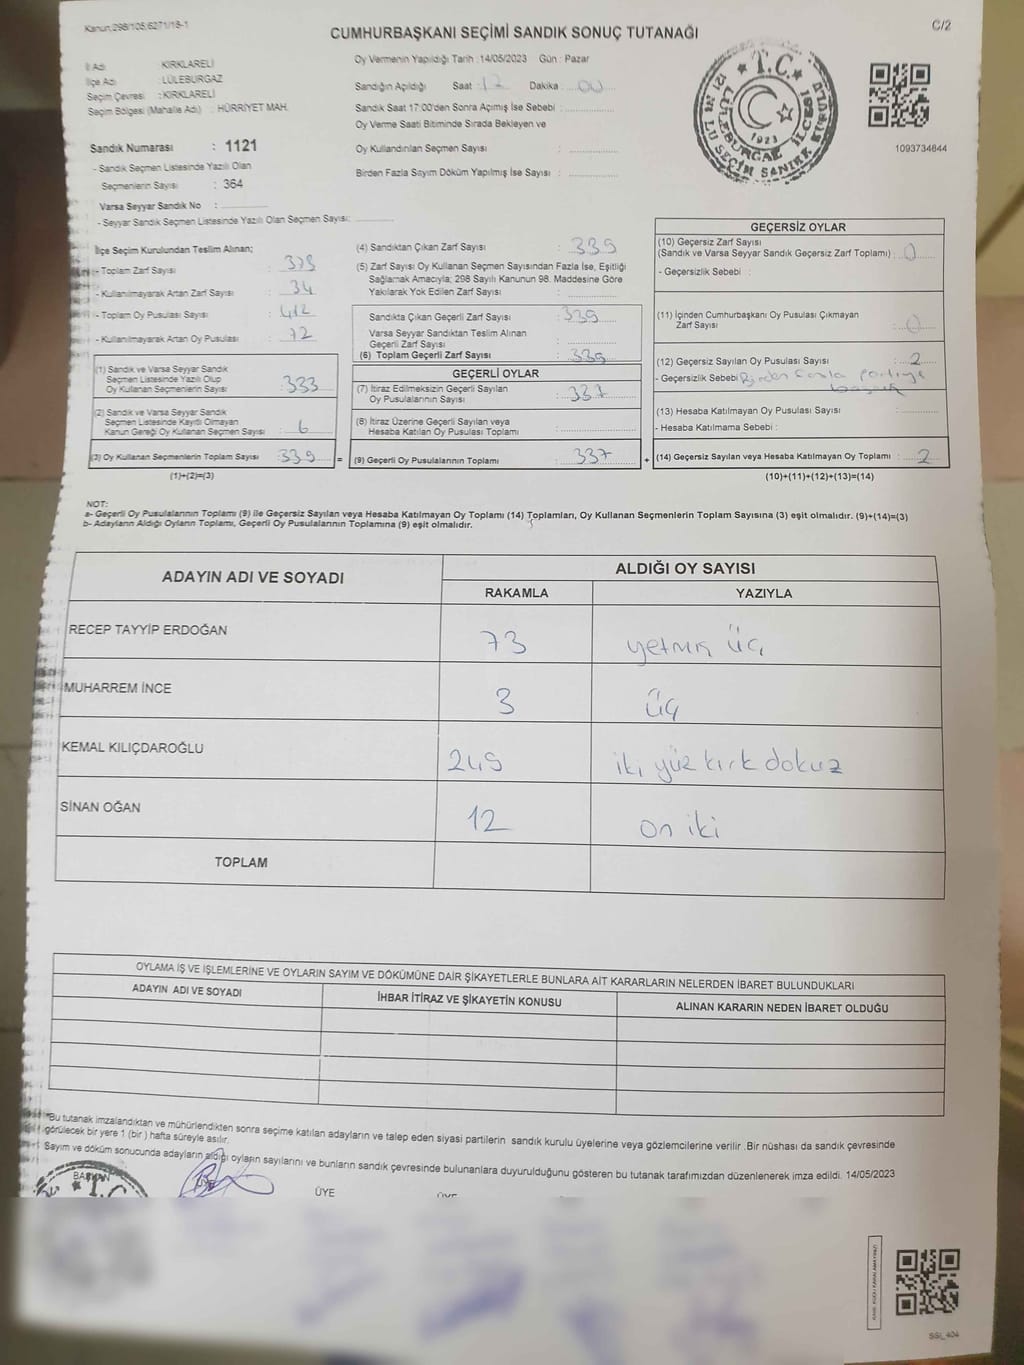 Kanun,298/105,6271/18-1
C/2
CUMHURBAŞKANI SEÇİMİ SANDIK SONUÇ TUTANAĞI
İl Adı : KIRKLARELİ
İlçe Adı : LÜLEBURGAZ
Seçim Çevresi : KIRKLARELİ
Seçim Bölgesi (Mahalle Adı) : HÜRRİYET MAH.
Sandık Numarası : 1121
- Sandık Seçmen Listesinde Yazılı Olan
Seçmenlerin Sayısı : 364
Varsa Seyyar Sandık No :
- Seyyar Sandık Seçmen Listesinde Yazılı Olan Seçmen Sayısı:
Oy Vermenin Yapıldığı Tarih :14/05/2023 Gün : Pazar
Sandığın Açıldığı Saat : Dakika : 00
Sandık Saat 17:00'den Sonra Açımış İse Sebebi :
Oy Verme Saati Bitiminde Sırada Bekleyen ve
Oy Kullandırılan Seçmen Sayısı :
Birden Fazla Sayım Döküm Yapılmış İse Sayısı :
T.C.
1923
1093734844
İlçe Seçim Kurulundan Teslim Alınan;
- Toplam Zarf Sayısı :
- Kullanılmayarak Artan Zarf Sayısı : 34
- Toplam Oy Pusulası Sayısı : 412
- Kullanılmayarak Artan Oy Pusulası : 72
(1) Sandık ve Varsa Seyyar Sandık
Seçmen Listesinde Yazılı Olup
Oy Kullanan Seçmenlerin Sayısı : 333
(2) Sandık ve Varsa Seyyar Sandık
Seçmen Listesinde Kayıtlı Olmayan
Kanun Gereği Oy Kullanan Seçmen Sayısı : 6
(3) Oy Kullanan Seçmenlerin Toplam Sayısı : 339 =
(1)+(2)=(3)
(4) Sandıktan Çıkan Zarf Sayısı : 339
(5) Zarf Sayısı Oy Kullanan Seçmen Sayısından Fazla İse, Eşitliği
Sağlamak Amacıyla; 298 Sayılı Kanunun 98. Maddesine Göre
Yakılarak Yok Edilen Zarf Sayısı :
Sandıkta Çıkan Geçerli Zarf Sayısı : 339
Varsa Seyyar Sandıktan Teslim Alınan
Geçerli Zarf Sayısı :
(6) Toplam Geçerli Zarf Sayısı : 339
GEÇERLİ OYLAR
(7) İtiraz Edilmeksizin Geçerli Sayılan
Oy Pusulalarının Sayısı : 337
(8) İtiraz Üzerine Geçerli Sayılan veya
Hesaba Katılan Oy Pusulası Toplamı :
(9) Geçerli Oy Pusulalarının Toplamı : 337 +
GEÇERSİZ OYLAR
(10) Geçersiz Zarf Sayısı
(Sandık ve Varsa Seyyar Sandık Geçersiz Zarf Toplamı) : 0
- Geçersizlik Sebebi :
(11) İçinden Cumhurbaşkanı Oy Pusulası Çıkmayan
Zarf Sayısı : 0
(12) Geçersiz Sayılan Oy Pusulası Sayısı : 2
- Geçersizlik Sebebi : Birden fazla partiye
(13) Hesaba Katılmayan Oy Pusulası Sayısı :
- Hesaba Katılmama Sebebi :
(14) Geçersiz Sayılan veya Hesaba Katılmayan Oy Toplamı : 2
(10)+(11)+(12)+(13)=(14)
NOT:
a- Geçerli Oy Pusulalarının Toplamı (9) ile Geçersiz Sayılan veya Hesaba Katılmayan Oy Toplamı (14) Toplamları, Oy Kullanan Seçmenlerin Toplam Sayısına (3) eşit olmalıdır. (9)+(14)=(3)
b- Adayların Aldığı Oyların Toplamı, Geçerli Oy Pusulalarının Toplamına (9) eşit olmalıdır.
ADAYIN ADI VE SOYADI
ALDIĞI OY SAYISI
RAKAMLA YAZIYLA
RECEP TAYYİP ERDOĞAN 73 yetmiş üç
MUHARREM İNCE 3 üç
KEMAL KILIÇDAROĞLU 249 iki yüz kırk dokuz
SİNAN OĞAN 12 on iki
TOPLAM
OYLAMA İŞ VE İŞLEMLERİNE VE OYLARIN SAYIM VE DÖKÜMÜNE DAİR ŞİKAYETLERLE BUNLARA AİT KARARLARIN NELERDEN İBARET BULUNDUKLARI
ADAYIN ADI VE SOYADI İHBAR İTİRAZ VE ŞİKAYETİN KONUSU ALINAN KARARIN NEDEN İBARET OLDUĞU
*Bu tutanak imzalandıktan ve mühürlendikten sonra seçime katılan adayların ve talep eden siyasi partilerin sandık kurulu üyelerine veya gözlemcilerine verilir .Bir nüshası da sandık çevresinde
görülecek bir yere 1 (bir ) hafta süreyle asılır.
Sayım ve döküm sonucunda adayların aldığı oyların sayılarını ve bunların sandık çevresinde bulunanlara duyurulduğunu gösteren bu tutanak tarafımızdan düzenlenerek imza edildi. 14/05/2023
BAŞKAN
T.C.
ÜYE